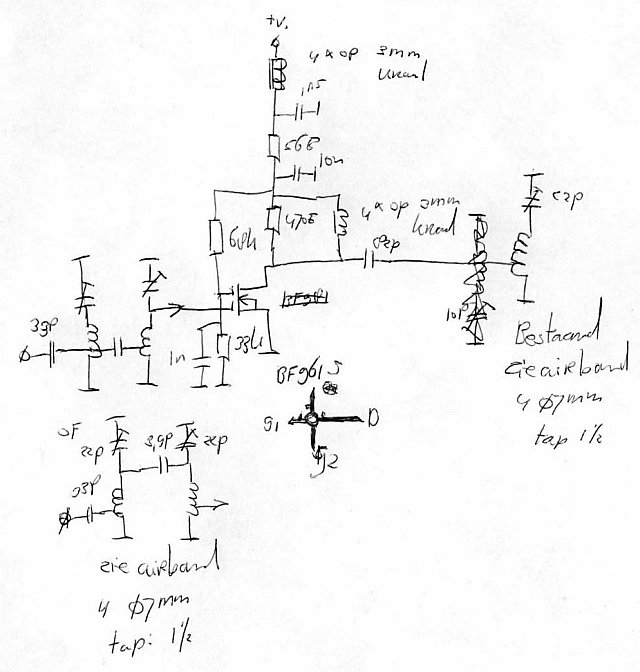 +V.
4 * op 3mm
kraal
1n5
56E
10n
4 * op 3mm
kraal
68k
470E
82p
22p
39P
1n
33k
10P
Bestaand
zie airband
4 Ø7mm
tap 1½
BF961
S
G1
D
g2
OF
22p
3,9P
22p
33P
zie airband
4 Ø7mm
tap: 1½